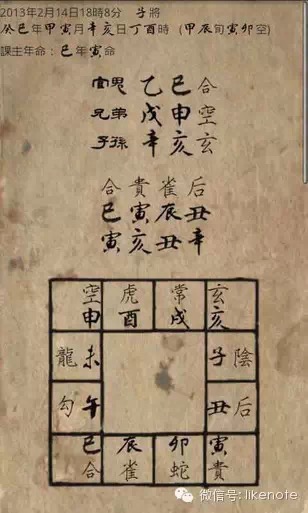 2013年2月14日18時8分 子將
癸巳年甲寅月辛亥日丁酉時 (甲辰旬寅卯空)
課主年命：巳年寅命
官鬼 乙巳合
兄弟 戊申空
子孫 辛亥玄
合貴雀后
巳寅辰丑
寅亥丑辛
空虎常玄
申酉戌亥
龍未 子陰
勾午 丑后
巳辰卯寅
合雀蛇貴
微信号: likenote